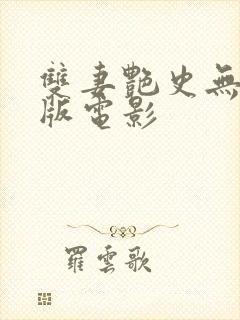 雙妻艷史無
版電影
羅雲歌